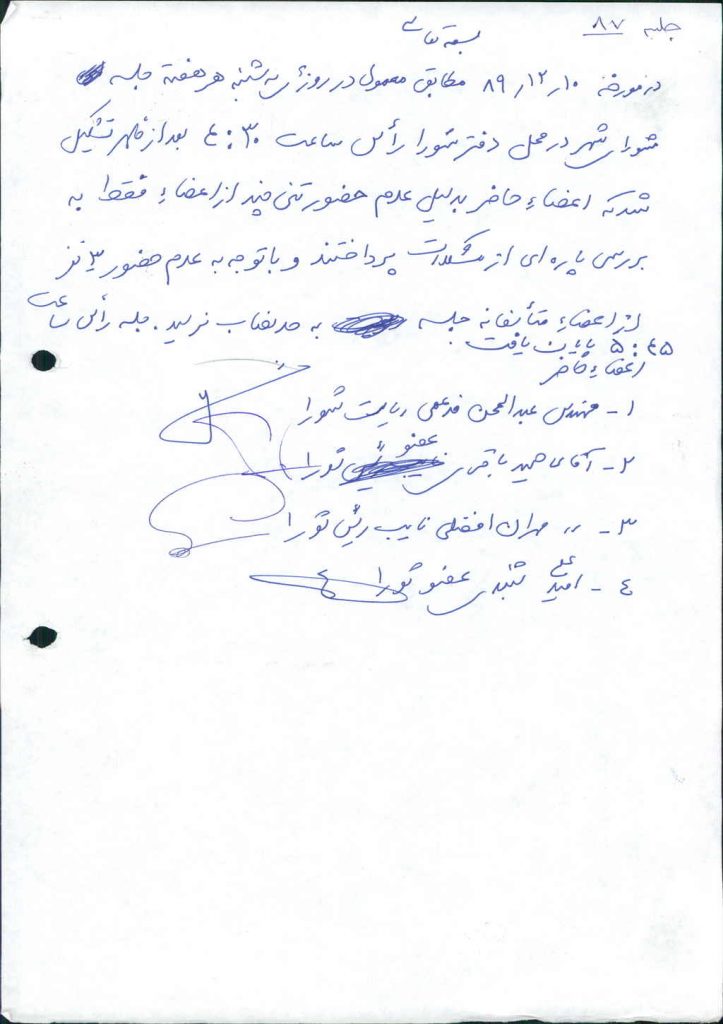 جلسه ۸۷
بسمه تعالی
در مورخه ۸۹/۱۲/۱۰ مطابق معمول در روزهای سه شنبه هر هفته جلسه
شورای شهر در محل دفتر شورا رأس ساعت ۴:۳۰ بعد از ظهر تشکیل
شد که اعضاء حاضر بدلیل عدم حضور تنی چند از اعضاء فقط به
بررسی پاره ای از مشکلات پرداختند و با توجه به عدم حضور ۳ نفر
از اعضاء متأسفانه جلسه به حد نصاب نرسید. جلسه رأس ساعت
۵:۴۵ پایان یافت.
اعضاء حاضر
۱- مهندس ریاست شورا
۲- آقای حمید باقری عضو شورا
۳- ״ مهران افضلی نایب رئیس شورا
۴- امید علی عضو شورا